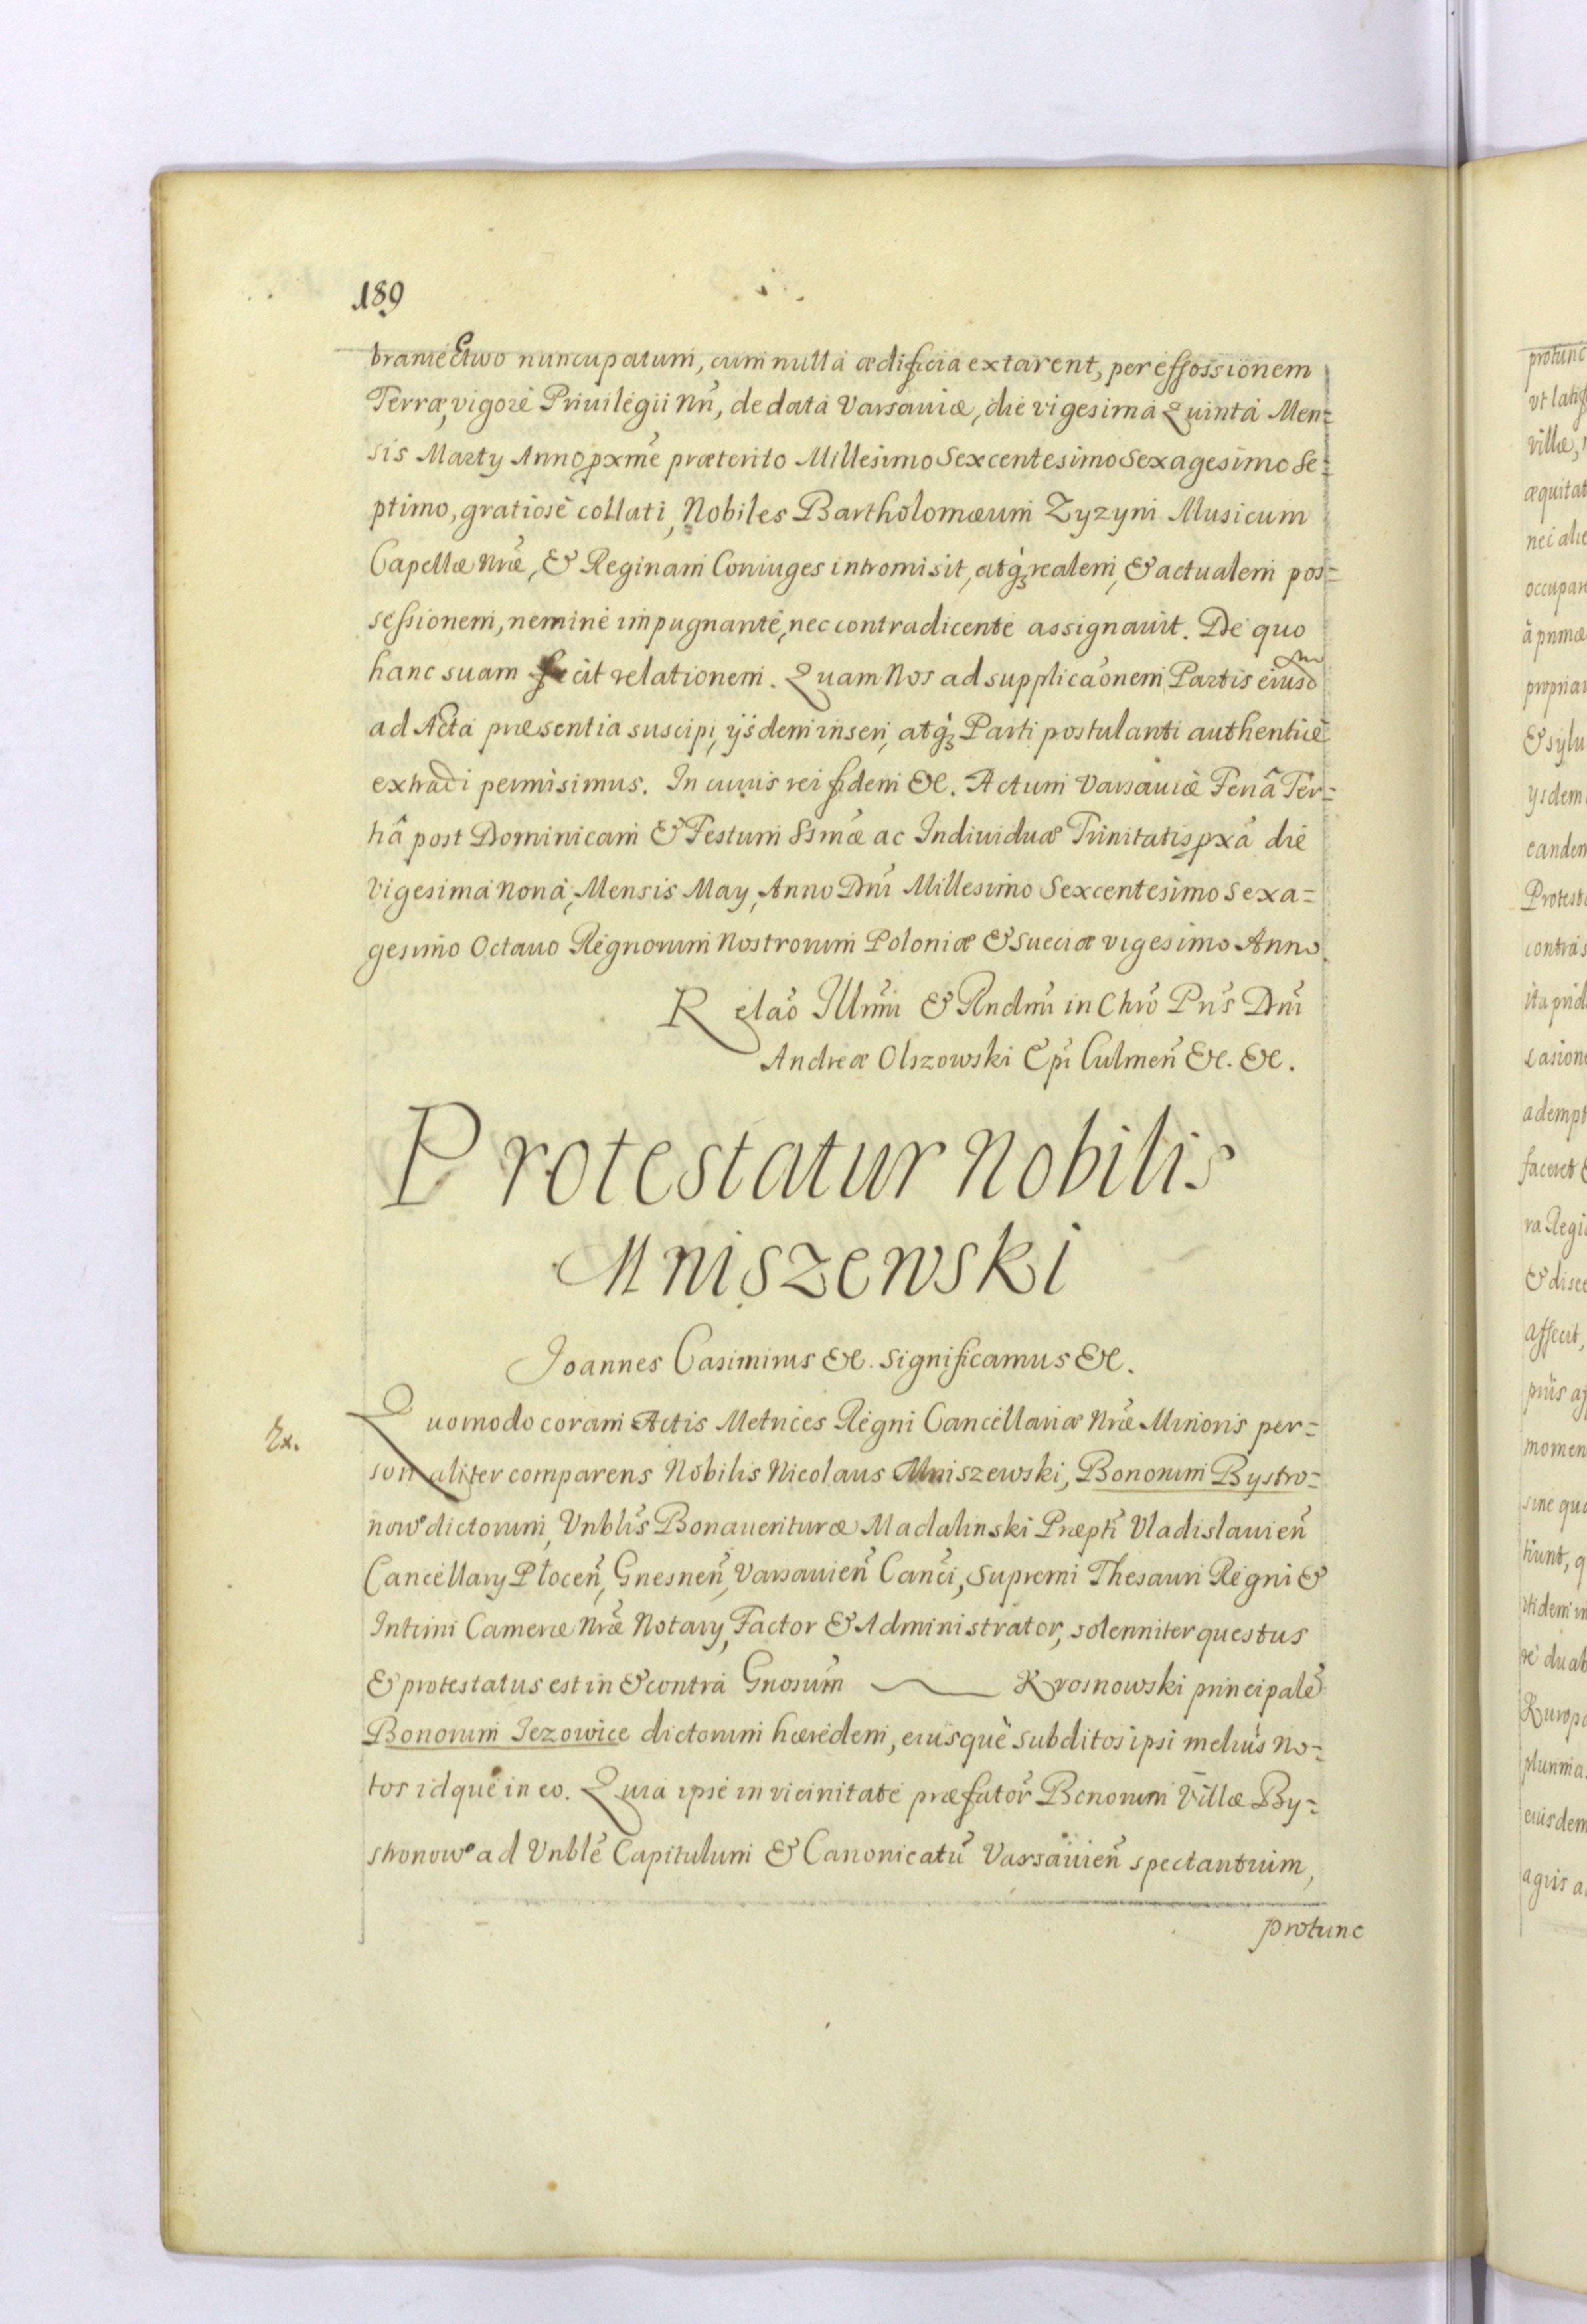 189
bramectwo nuncupatum, cum nulla ædificia extarent, per effossionem
Terræ, vigore Priuilegii Nrĩ, de data Varsauiæ, die vigesima Quinta Men=
sis Marty Anno pxme præterito Millesimo Sexcentesimo Sexagesimo Se=
ptimo, gratiose collati, Nobiles Bartholomæum Zyzyni Musicum
Capellæ Nræ, & Reginam Coniuges intromisit, atq́ʒ realem, & actualem pos=
sessionem, nemine impugnante, nec contradicente assignauit. De quo
hanc suam fecit relationem. Quam Nos ad supplicaõnem Partis eiusd̃m
ad Acta præsentia suscipi, ysdem inseri, atq́ʒ Parti postulanti authentice
extradi permisimus. In cuius rei fidem &c. Actum Varsauiæ Feriâ Ter=
tiâ post Dominicam & Festum Ssmæ ac Indiuiduæ Trinitatis pxâ die
vigesima nona, Mensis May, Anno Dnĩ Millesimo Sexcentesimo Sexa=
gesimo Octauo Regnorum Nostrorum Poloniæ & Sueciæ vigesimo Anno
Relaõ Illmĩ & Rndmĩ in Chrõ Prĩs Dnĩ
Andreæ Olszowski Epĩ Culmen̄ &c. &c.
Protestatur Nobilis
Mniszewski
Joannes Casimirus &c. significamus &c.
Ex.
Quomodo coram Actis Metrices Regni Cancellariæ Nræ Minoris per=
sonaliter comparens Nobilis Nicolaus Mniszewski, Bonorum Bystro=
nowº dictorum, Vnblis Bonauenturæ Madalinski Præptĩ Vladislauien̄
Cancellary Płocen̄, Gnesnen̄, Varsauien̄ Canci, Supremi Thesauri Regni &
Intimi Cameræ Nræ Notary, Factor & Administrator, solenniter questus
& protestatus est in & contra Gnosum Krosnowski principalẽ
Bonorum Jezowice dictorum hæredem, eiusque subditos ipsi melius no=
tos idque in eo. Quia ipse in vicinitate præfator̃ Bonorum Villæ By=
stronowº ad Vnble Capitulum & Canonicatũ Varsauien̄ spectantium,
protunc